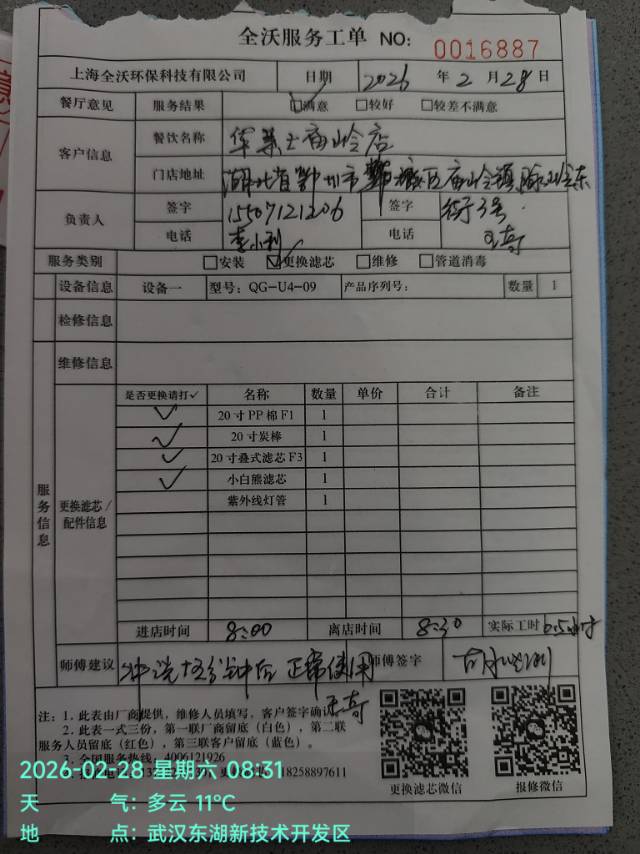 全沃服务工单 NO: 0016887
上海全沃环保科技有限公司 日期 2026 年 2 月 28 日
餐厅意见 服务结果 ☑满意 □较好 □较差不满意
客户信息 餐饮名称 华莱士庙岭店
门店地址 湖北省鄂州市 城区庙岭镇 岭东
负责人 签字 15507121206 签字 街3号
电话 李小利 电话 王奇
服务类别 □安装 ☑更换滤芯 □维修 □管道消毒
设备信息 设备一 型号: QG-U4-09 产品序列号: 数量 1
检修信息
维修信息
服务信息
更换滤芯/配件信息
是否更换请打✓ 名称 数量 单价 合计 备注
✓ 20寸PP棉F1 1
✓ 20寸炭棒 1
✓ 20寸叠式滤芯F3 1
✓ 小白熊滤芯 1
紫外线灯管 1
进店时间 8:00 离店时间 8:30 实际工时 0.5小时
师傅建议 冲洗五分钟后 正常使用 师傅签字
王奇
注: 1. 此表由厂商提供，维修人员填写，客户签字确认
2. 此表一式三份，第一联厂商留底（白色），第二联
服务人员留底（红色），第三联客户留底（蓝色）。
3. 全国服务热线: 4006121926
18258897611
更换滤芯微信 报修微信
2026-02-28 星期六 08:31
天 气: 多云 11℃
地 点: 武汉东湖新技术开发区